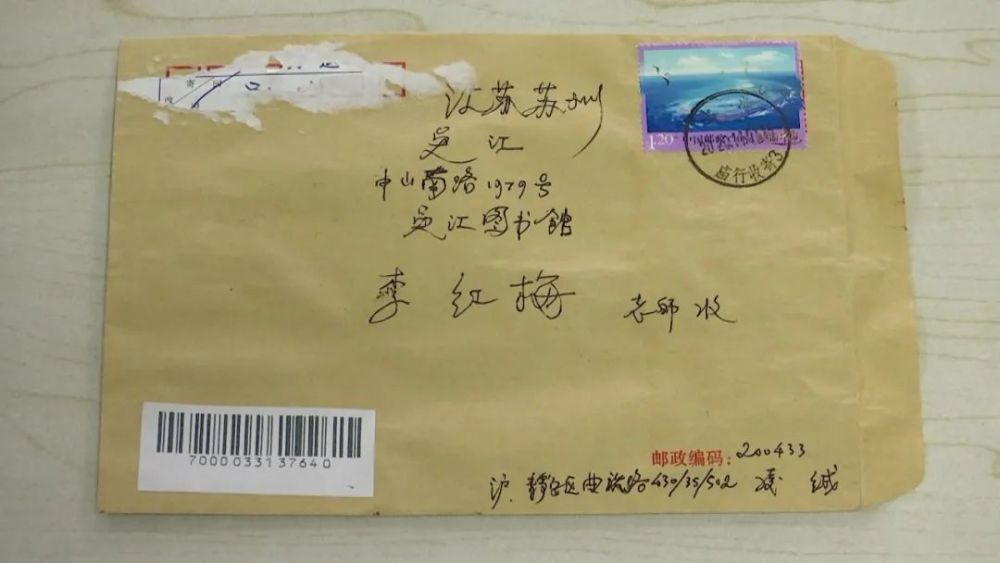 江苏苏州
吴江
中山南路1979号
吴江图书馆
李红梅 老师收
1.20
收寄3
7000033137640
邮政编码：200433
沪 静安区曲沃路430/35/502 凌 缄